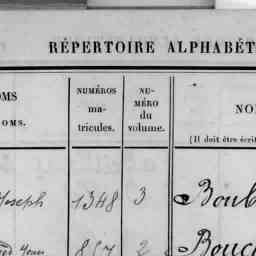 RÉPERTOIRE ALPHABÉT
OMS
OMS.
NUMÉROS
ma-
tricules.
NU-
MÉRO
du
volume.
NO
(Il doit être écrit
Joseph 1348 3 Boub
857 2 Bouc